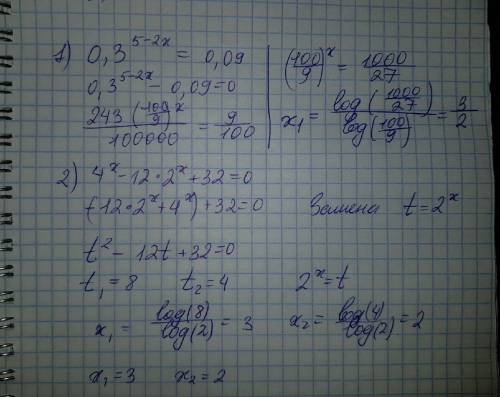 1) 0,3^(5-2x) = 0,09
0,3^(5-2x) - 0,09=0
243 (100/9)^x / 100000 = 9/100
(100/9)^x = 1000/27
x₁ = log(1000/27) / log(100/9) = 3/2
2) 4^x - 12·2^x + 32 = 0
(-12·2^x + 4^x) + 32 = 0 Замена t = 2^x
t² - 12t + 32 = 0
t₁ = 8 t₂ = 4 2^x = t
x₁ = log(8)/log(2) = 3 x₂ = log(4)/log(2) = 2
x₁ = 3 x₂ = 2